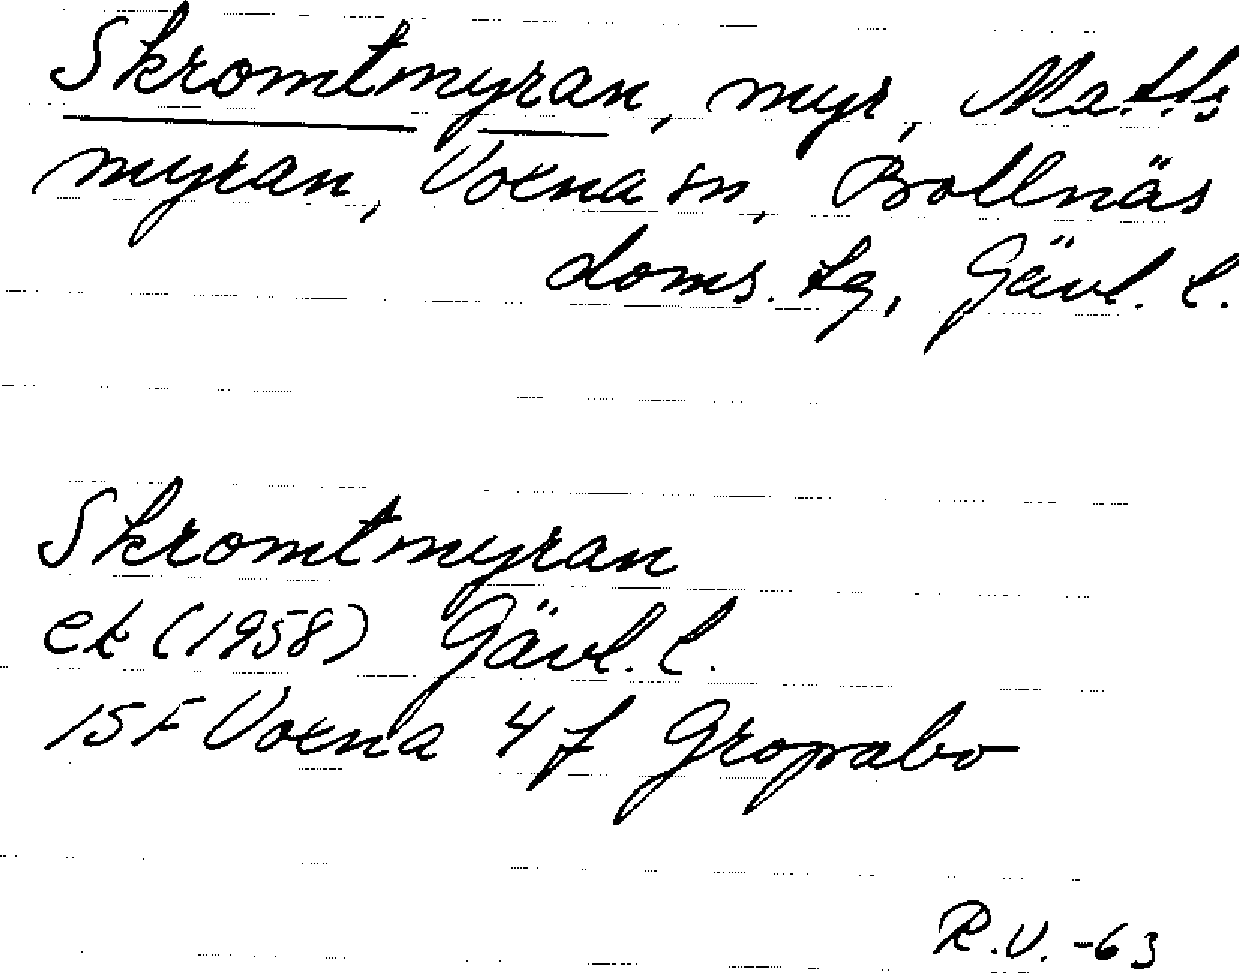 Skromtmyran, myr, Matts
myran, Voxna sn, Bollnäs
doms. lg, Gävl. l.
Skromtmyran
ek (1958) Gävl. l.
15F Voxna 4 f Gropabo
R.V. -63